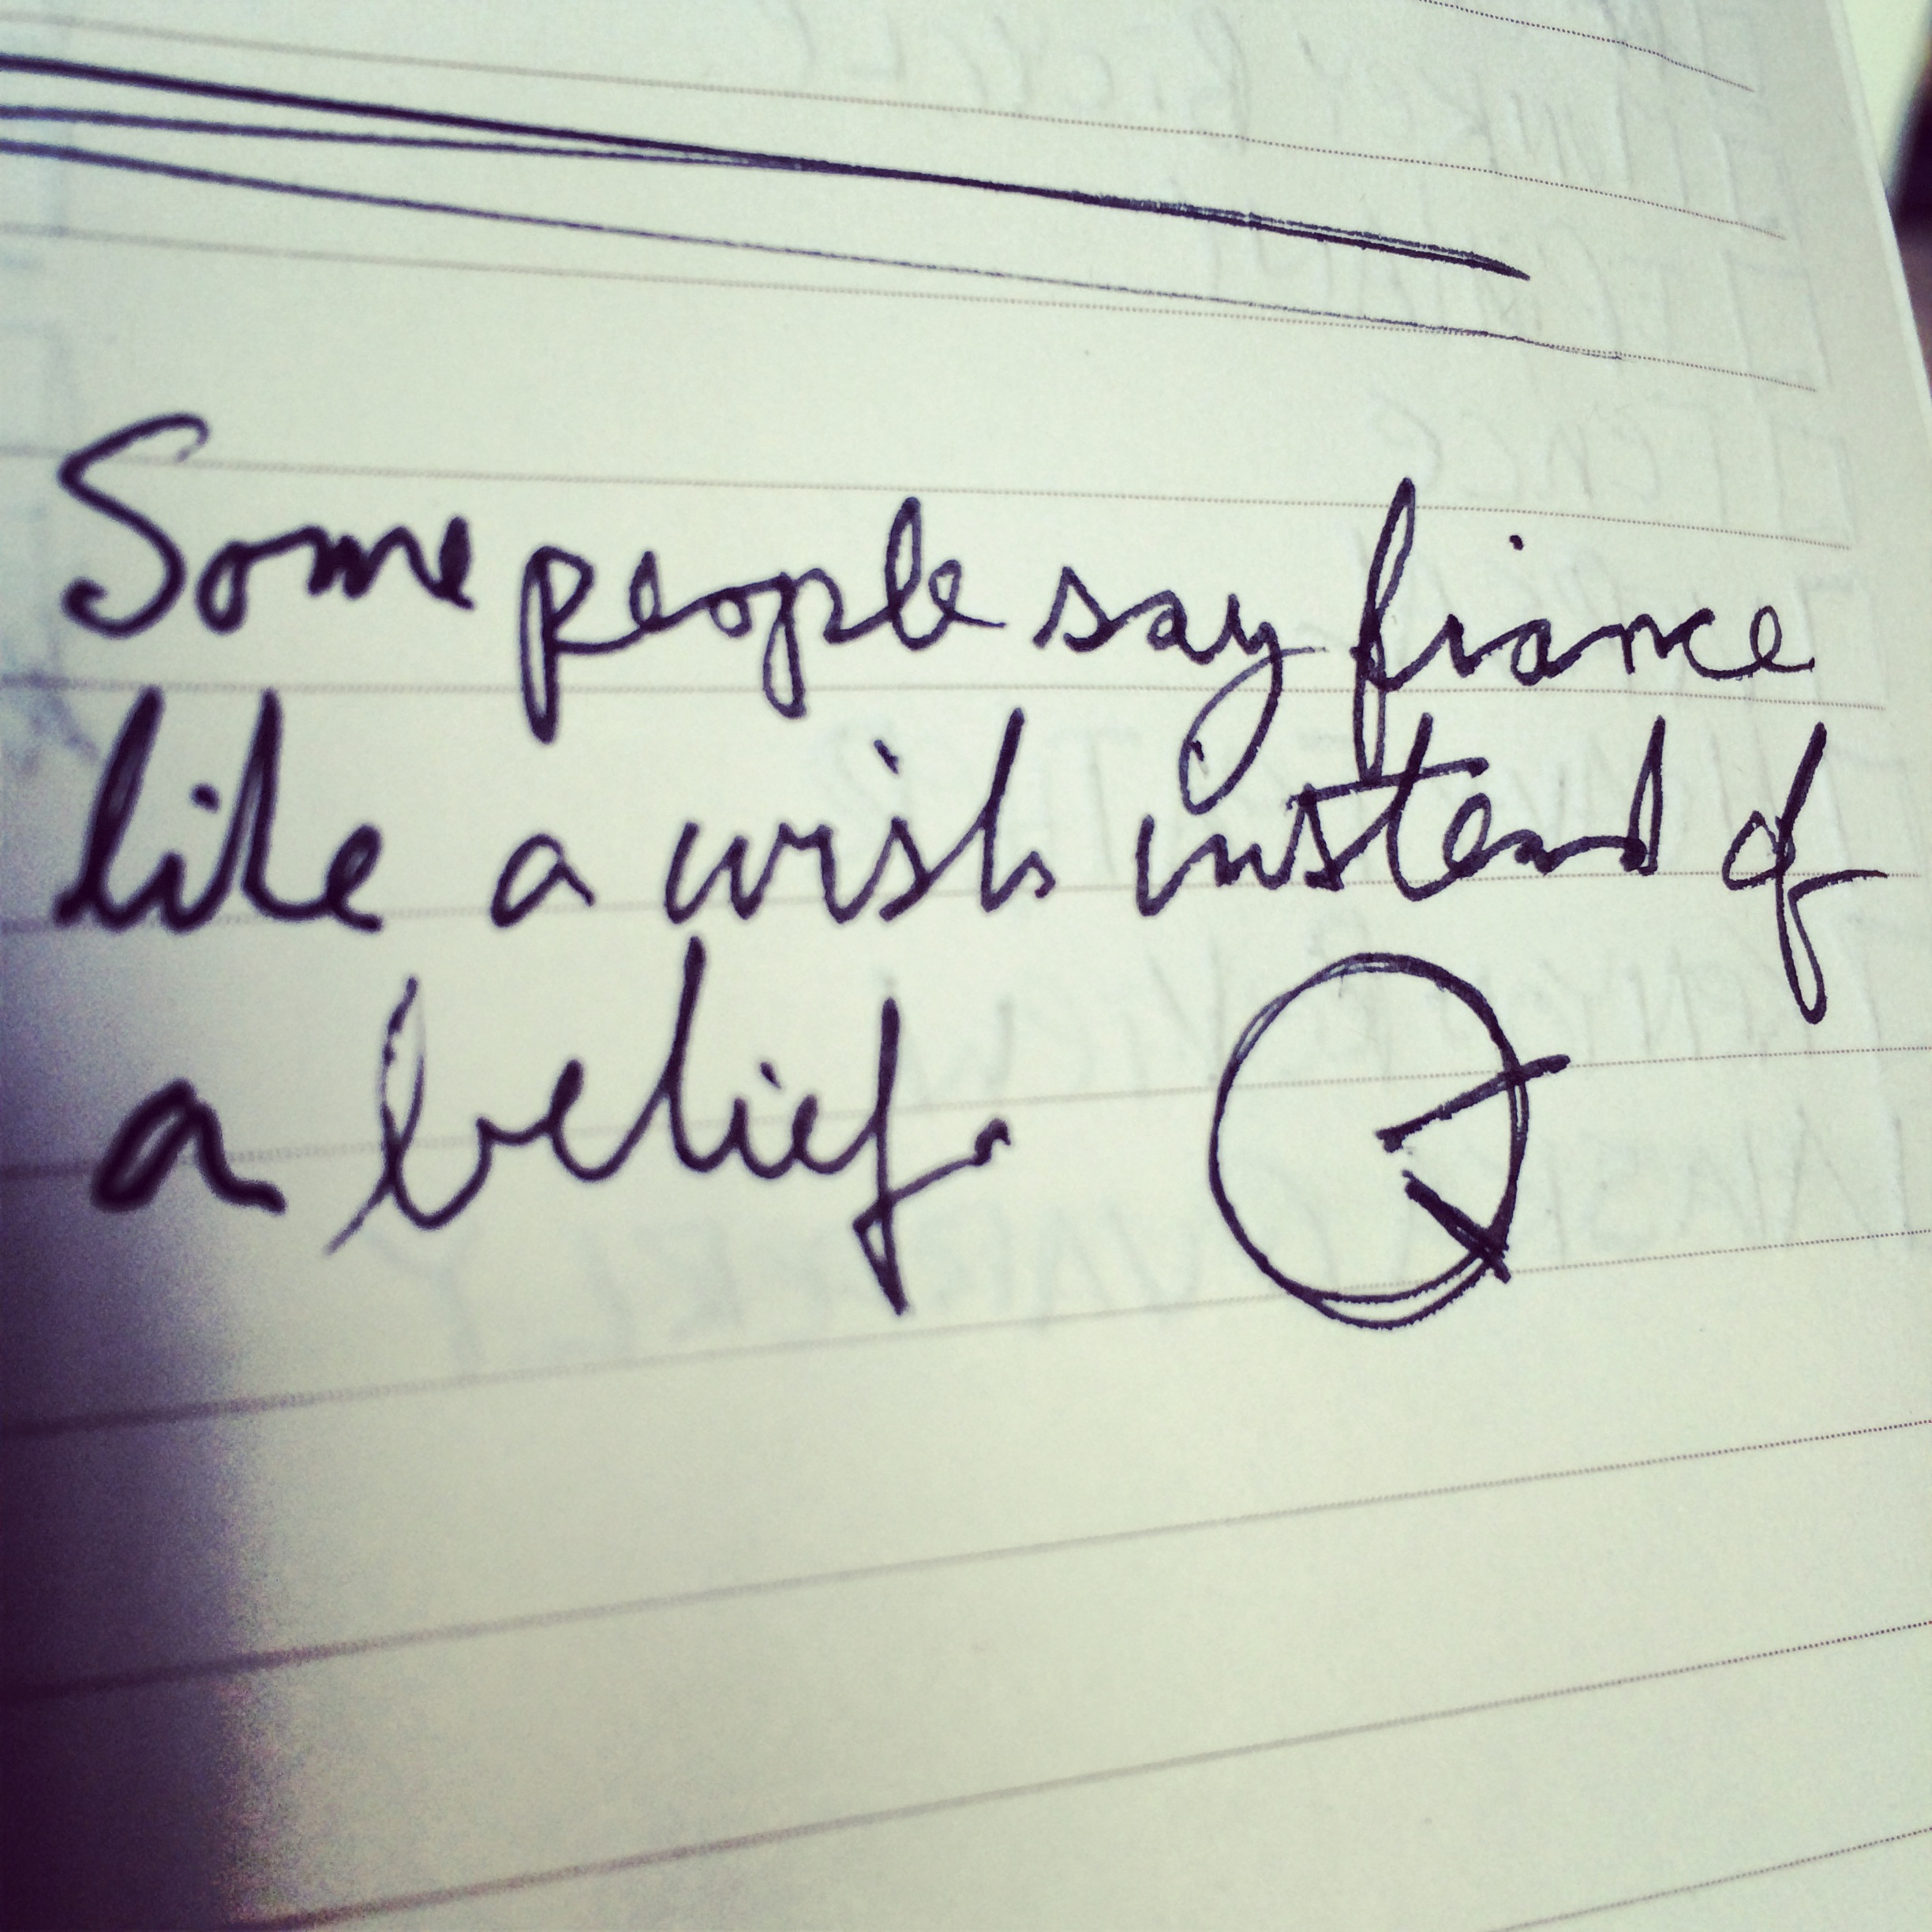 Some people say fiance
like a wish instead of
a belief.